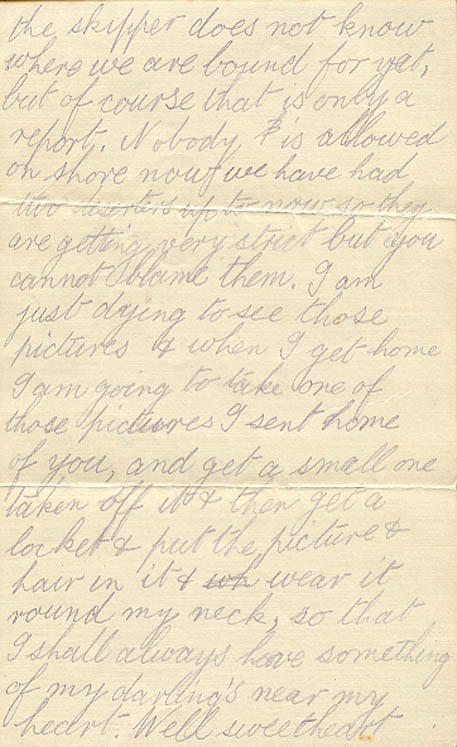 the skipper does not know
where we are bound for yet,
but of course that is only a
report. Nobody is allowed
on shore now we have had
two deserters up to now so they
are getting very strict but you
cannot blame them. I am
just dying to see those
pictures & when I get home
I am going to take one of
those pictures I sent home
of you, and get a small one
taken off it & then get a
locket & put the picture &
hair in it & wh wear it
round my neck, so that
I shall always have something
of my darling's near my
heart. Well sweetheart